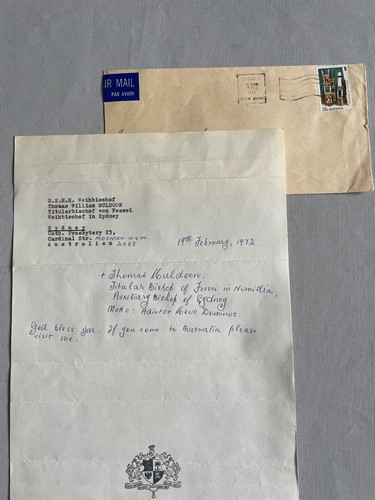 AIR MAIL
PAR AVION
35c AUSTRALIA
S.E.H.H. Weihbischof
Thomas William MULDOON
Titularbischof von Fessei
Weihbischof in Sydney
Sydney
Cath. Presbytery 23,
Cardinal Str. MOSMAN-NSW
Australien 2088
19th February, 1972
+ Thomas Muldoon,
Titular Bishop of Fessei in Numidia,
Auxiliary Bishop of Sydney.
Motto: Adiutor Meus Dominus.
God bless you. If you come to Australia please
visit me.